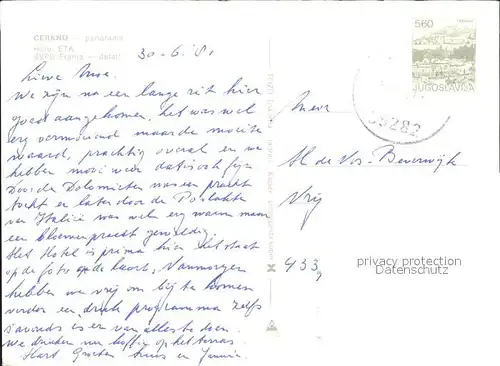 CERKNO — panorama
Hotel ETA
— detalj
30-6-81
Lieve
We zijn na een lange reis hier
goed aangekomen, het was wel
erg vermoeiend maar de moeite
waard, prachtig overal en we
hebben mooi weer
Door de Dolomieten was een pracht
tocht en later door de
van Italië was wel erg warm maar
een bloemenpracht geweldig.
Het Hotel is prima hier het staat
op de foto op de kaart, Vanmorgen
hebben we vrij om bij te komen
verder een druk programma zelfs
s'avonds is er van alles te doen.
We drinken nu koffie op het terras
Hart Groeten en
560
JUGOSLAVIJA
65282
M de Vos-Beverwijk
Vrij
433
privacy protection
Datenschutz